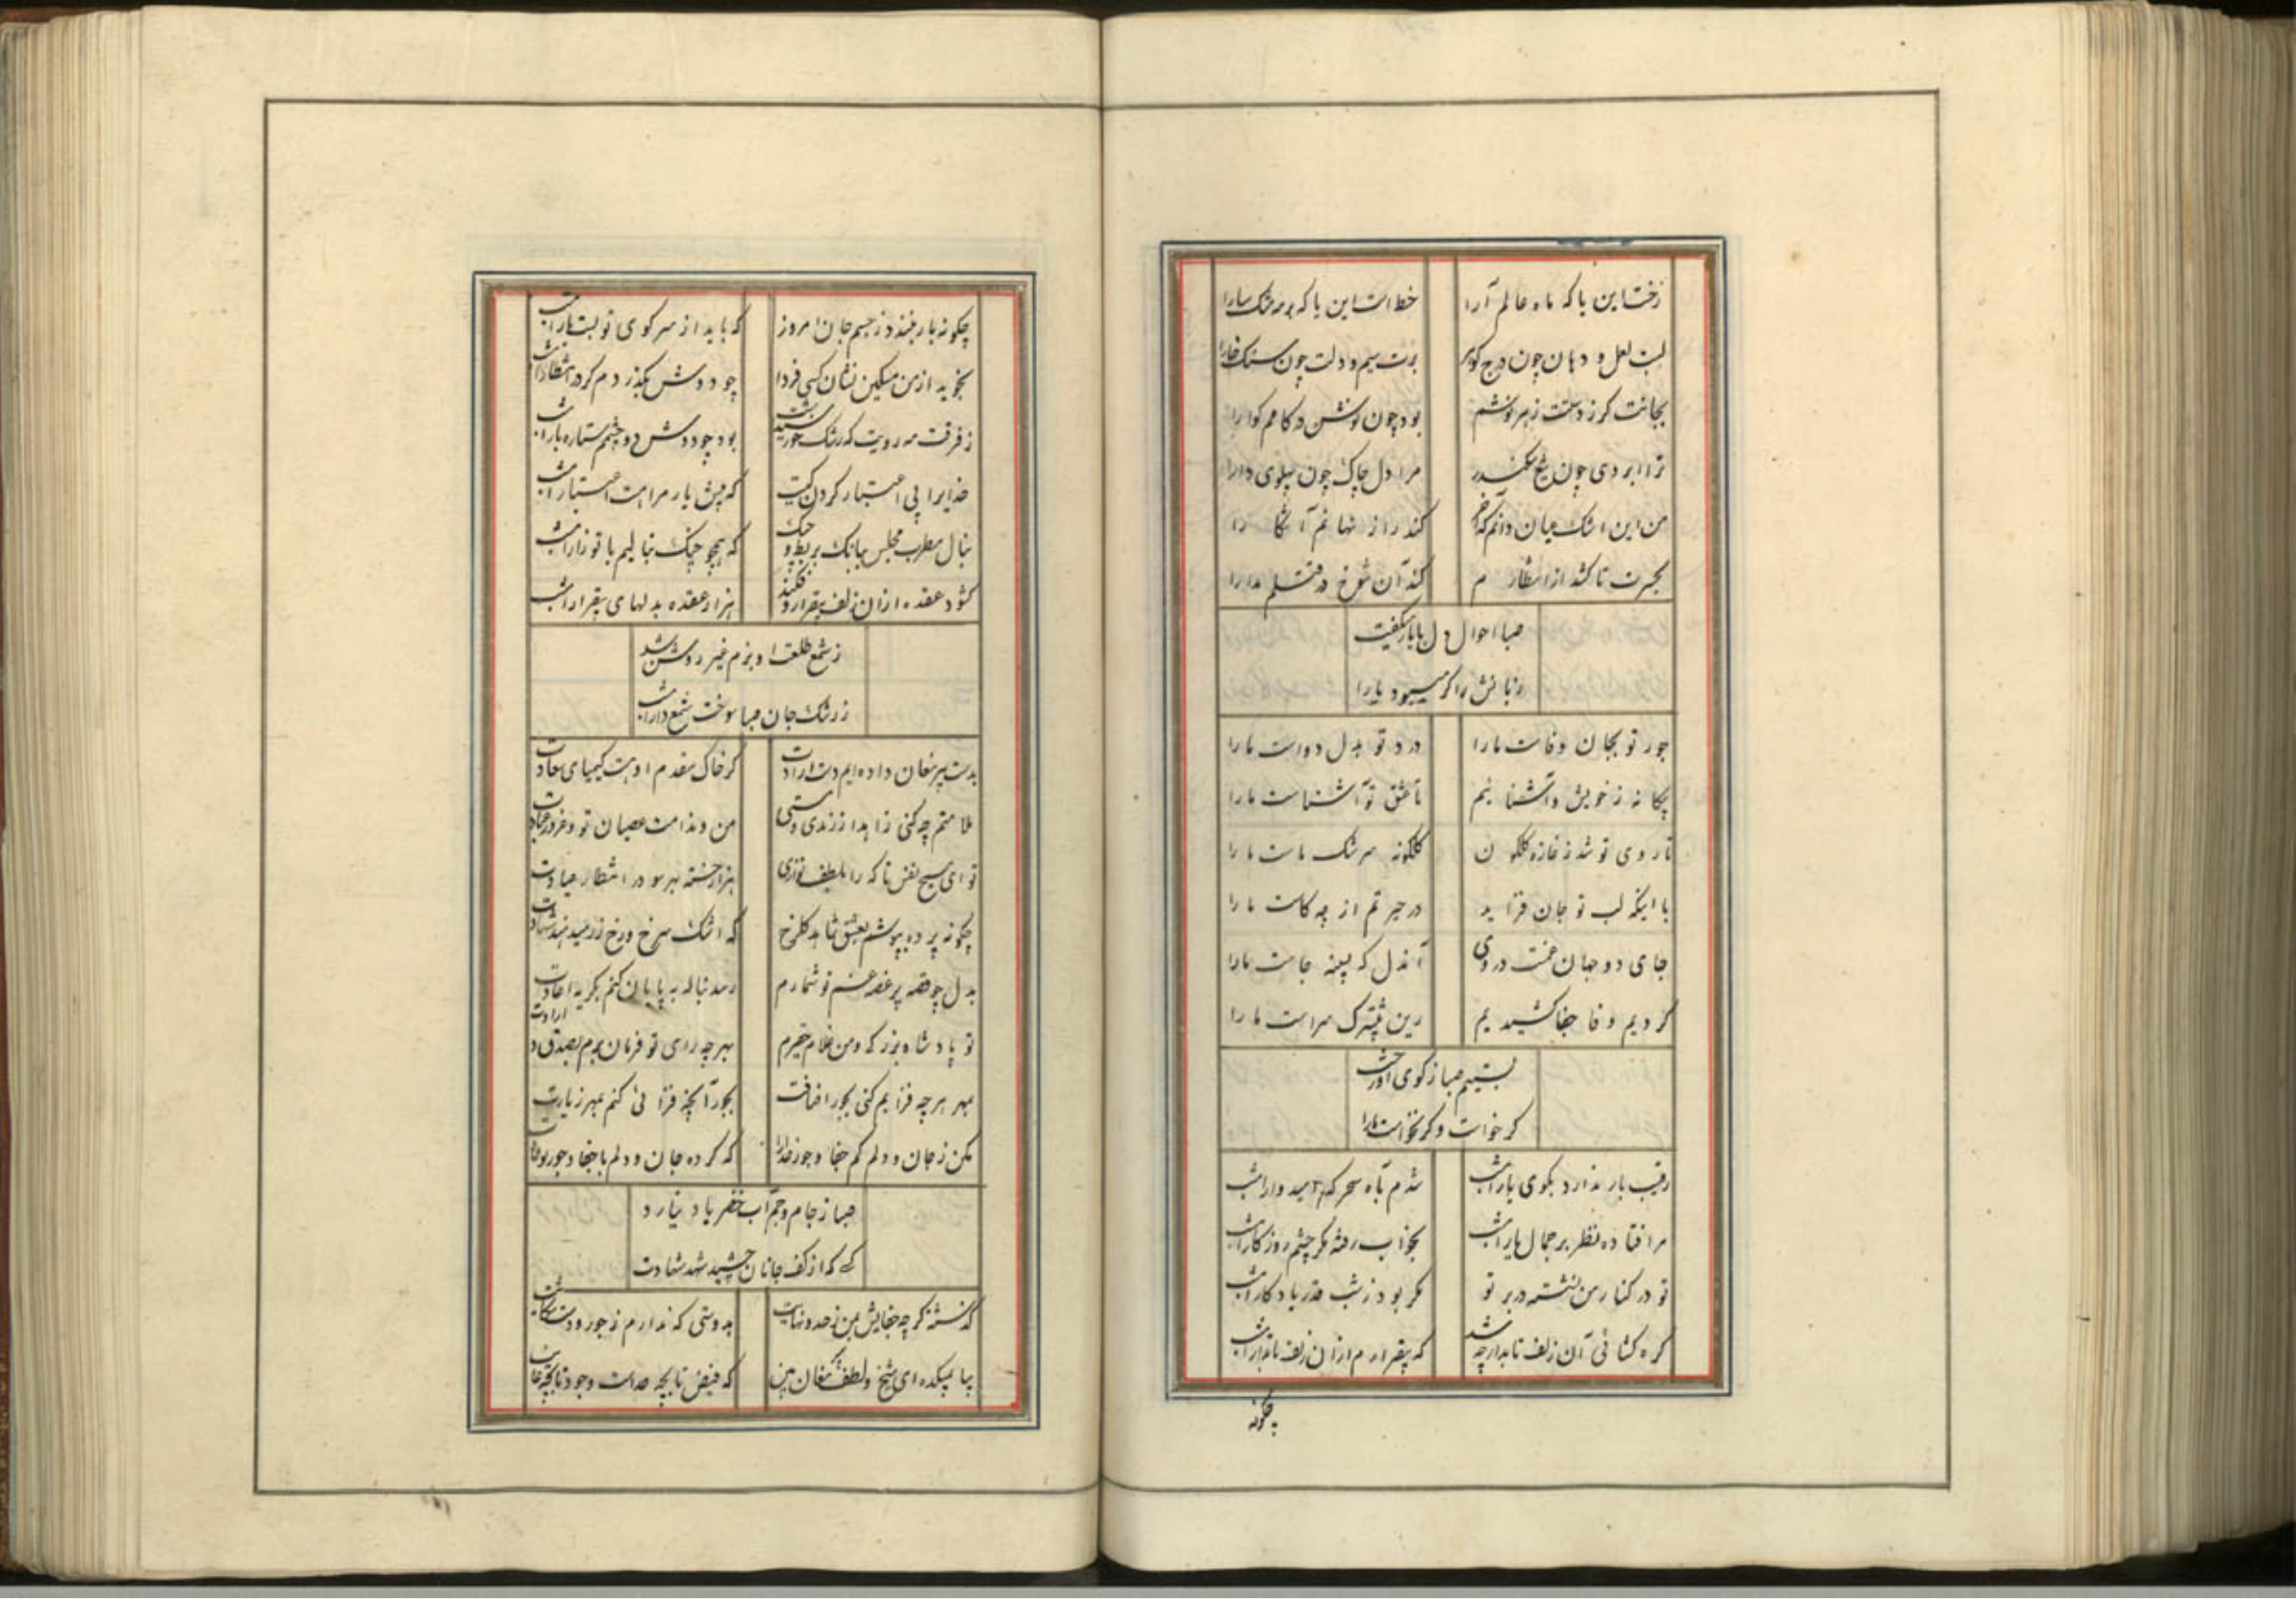 رخت این یا که ماه عالم آرا
خط است این یا که بر مه مشک سارا
لبت لعل و دهان چون درج گوهر
برت سیم و دلت چون سنگ خارا
بجانت کر ز دستت زهر نوشم
بود چون نوش در کامم کوارا
ترا ابروی چون تیغ سکندر
مرا دل چاک چون پهلوی دارا
من این اشک عیان دانم که آخر
کند راز نهانم آشکارا
بحسرت تا کشد از انتظارم
کند آن شوخ در قتلم مدارا
صبا احوال دل با یار میگفت
زبانش را کر میبود یارا
جور تو بجان وفاست ما را
درد تو بدل دواست ما را
بیکانه ز خویش و آشنائیم
تا عشق تو آشناست ما را
تا روی تو شد ز غازه کلکون
کلکونه سرشک ماست ما را
با اینکه لب تو جان فزاید
در حیرتم از چه کاست ما را
جای دو جهان غمت در وی
آندل که بسینه جاست ما را
کردیم وفا جفا کشیدیم
زین بیشترک سزاست ما را
بستیم صبا ز کوی او رخت
کر خواست و کر نخواست ما را
رقیب بار ندارد بکوی یار امشب
شدم به آه سحرکه امیدوار امشب
مرا فتاده نظر بر جمال یار امشب
بخواب رفته مکر چشم روزکار امشب
تو در کنار من نشسته در بر تو
مکر بود ز شب قدر یادکار امشب
کره کشائی آن زلف تابدار چه شد
که بیقرارم از آن زلف تابدار امشب
چکونه
چکونه بار نبندد ز جسم جان امروز
که باید از سر کوی تو بست بار امشب
نجوید از من مسکین نشان کسی فردا
چو دوش بکذردم کر در انتظار امشب
ز فرقت مه رویت که رشک خورشید است
بود چو دوش دو چشمم ستاره بار امشب
خدایرا پی اعتبار کردن کیست
که پیش یار مرا هست اعتبار امشب
بنال مطرب مجلس ببانک بربط و چنک
که همچو چنک بنالیم با تو زار امشب
کشود عقده از آن زلف بیقرار و فکند
هزار عقده بدلهای بیقرار امشب
ز شمع طلعت او بزم غیر روشن شد
ز رشک جان صبا سوخت شمع وار امشب
بدست پیر مغان داده‌ایم دست ارادت
که خاک مقدم اوست کیمیای سعادت
ملامتم چه کنی زاهدا ز رندی و مستی
من و ندامت عصیان تو و غرور عبادت
تو ای مسیح نفس تا که را بلطف نوازی
هزار خسته بهر سو در انتظار عیادت
چکونه پرده بپوشم بعشق شاهد کلرخ
که اشک سرخ و رخ زرد میدهند شهادت
بدل چو قصه پر غصه غم تو شمارم
رسد نباله به پایان کنم بکریه اعادت
تو پادشاه بزرکه و من غلام حقیرم
بهر چه رای تو فرمان برم بصدق و ارادت
بمهر هر چه فزایم کنی بجور اضافت
بجور آنچه فزائی کنم بمهر زیادت
مکن ز جان و دلم کم جفا و جور خدا را
که کرده جان و دلم با جفا و جور تو عادت
صبا ز جام جم و آب خضر یاد نیارد
کسی که از کف جانان چشید شهد شهادت
کذشته کرچه جفایش بمن ز حد و نهایت
بدوستی که ندارم ز جور دوست شکایت
بیا بمیکده ای شیخ و لطف مغان بین
که فیض تا بچه حد است وجود تا بچه غایت